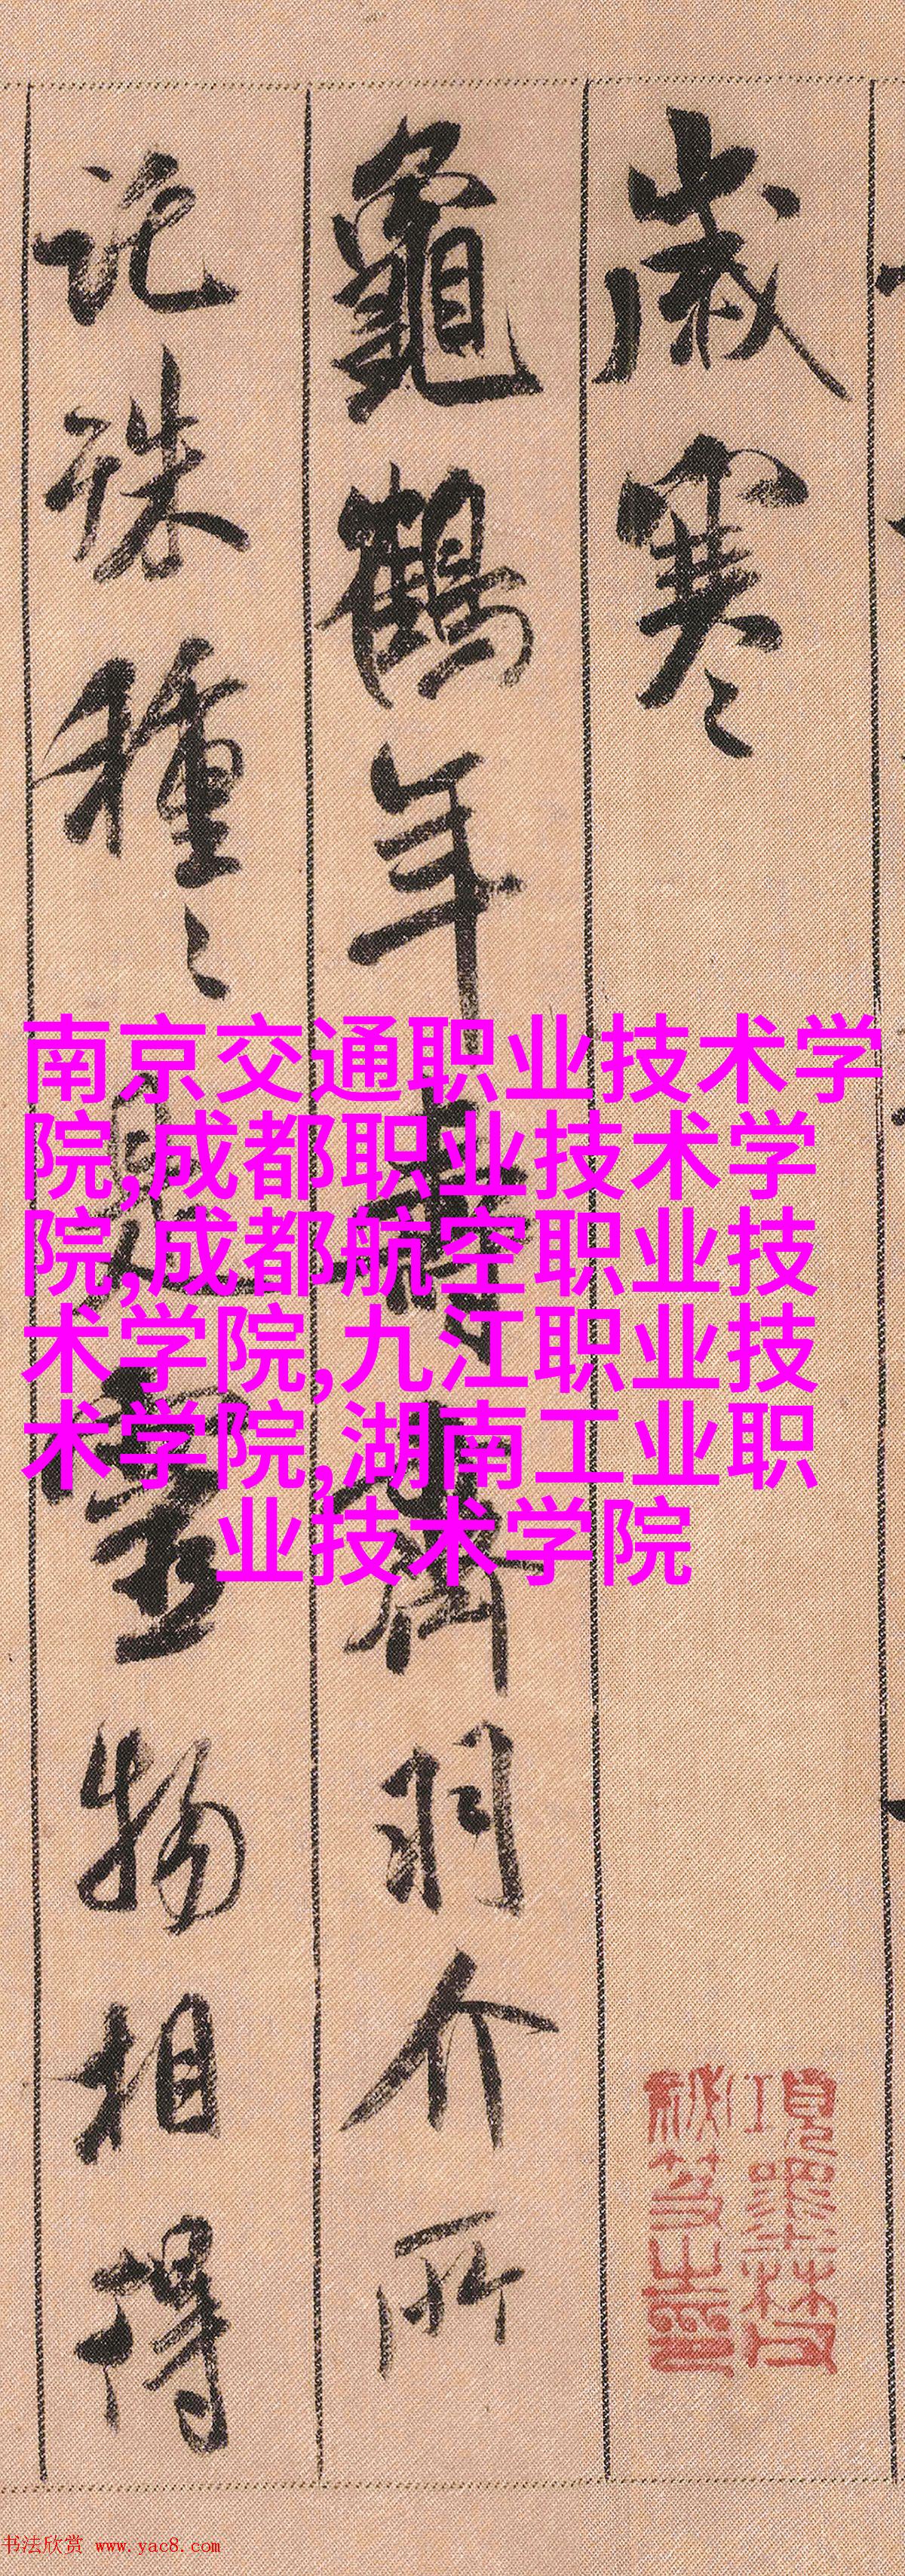 歲寒
龜鶴年壽齊羽介所
託殊種〻是靈物相得
南京交通职业技术学
院,成都职业技术学
院,成都航空职业技
术学院,九江职业技
术学院,湖南工业职
业技术学院
項墨林父
祕笈之印
书法欣赏 www.yac8.com